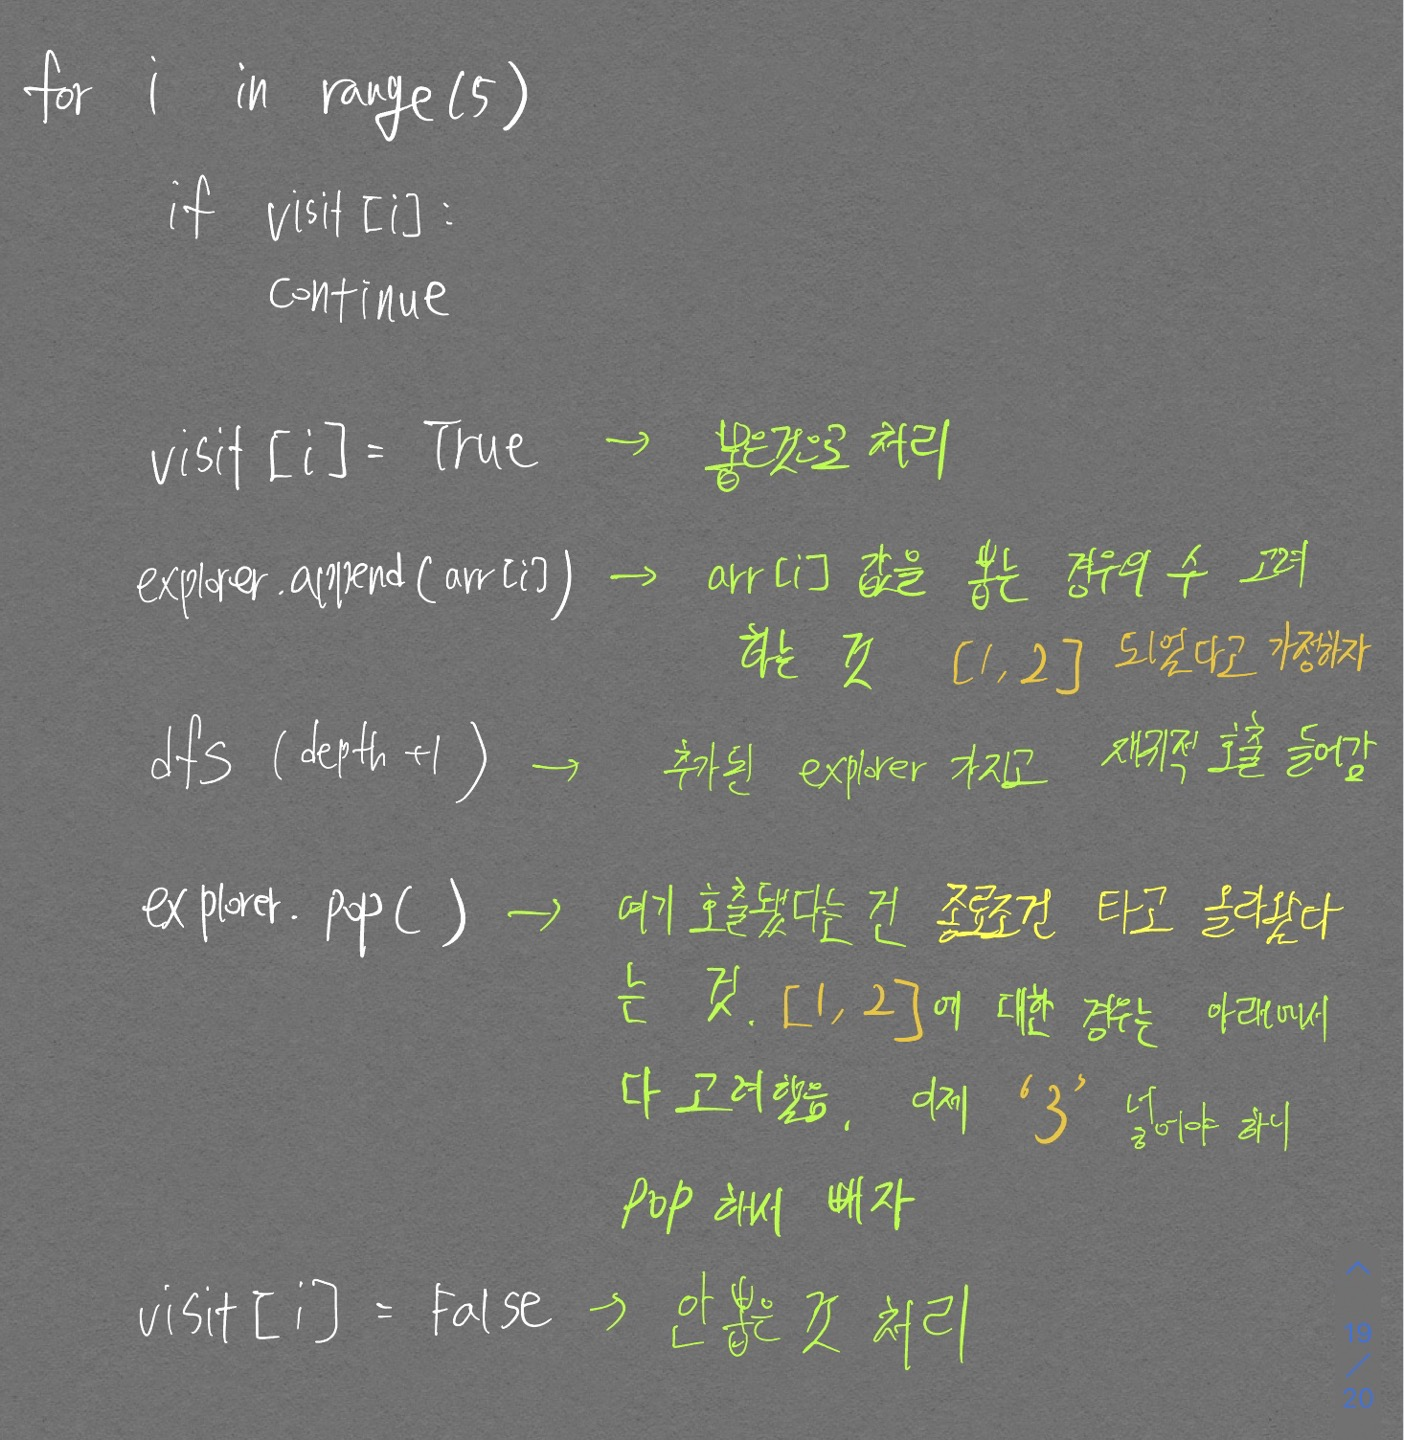 for i in range(5)
if visit[i]:
continue
visit[i] = True → 뽑은것으로 처리
explorer.append(arr[i]) → arr[i] 값을 뽑는 경우의 수 고려
하는 것 [1, 2] 되었다고 가정하자
dfs (depth+1) → 추가된 explorer 가지고 재귀적 호출 들어감
explorer.pop() → 여기 호출됐다는 건 종료조건 타고 올라왔다
는 것. [1, 2]에 대한 경우는 아래에서
다 고려했음. 이제 '3' 넣어야 하니
pop 해서 빼자
visit[i] = False → 안 뽑은 것 처리
19
/
20